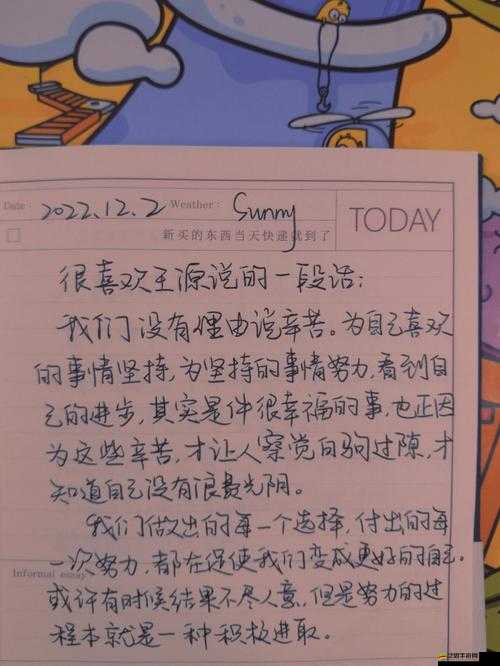 Date: 2022.12.2 Weather: Sunny
TODAY
新买的东西当天快递就到了
很喜欢王源说的一段话:
我们没有理由说辛苦。为自己喜欢
的事情坚持,为坚持的事情努力,看到自
己的进步,其实是件很幸福的事,也正因
为这些辛苦,才让人察觉白驹过隙,才
知道自己没有浪费光阴。
我们做出的每一个选择,付出的每
一次努力,都在促使我们变成更好的自己。
Informal essay
或许有时候结果不尽人意,但是努力的过
程本就是一种积极进取。